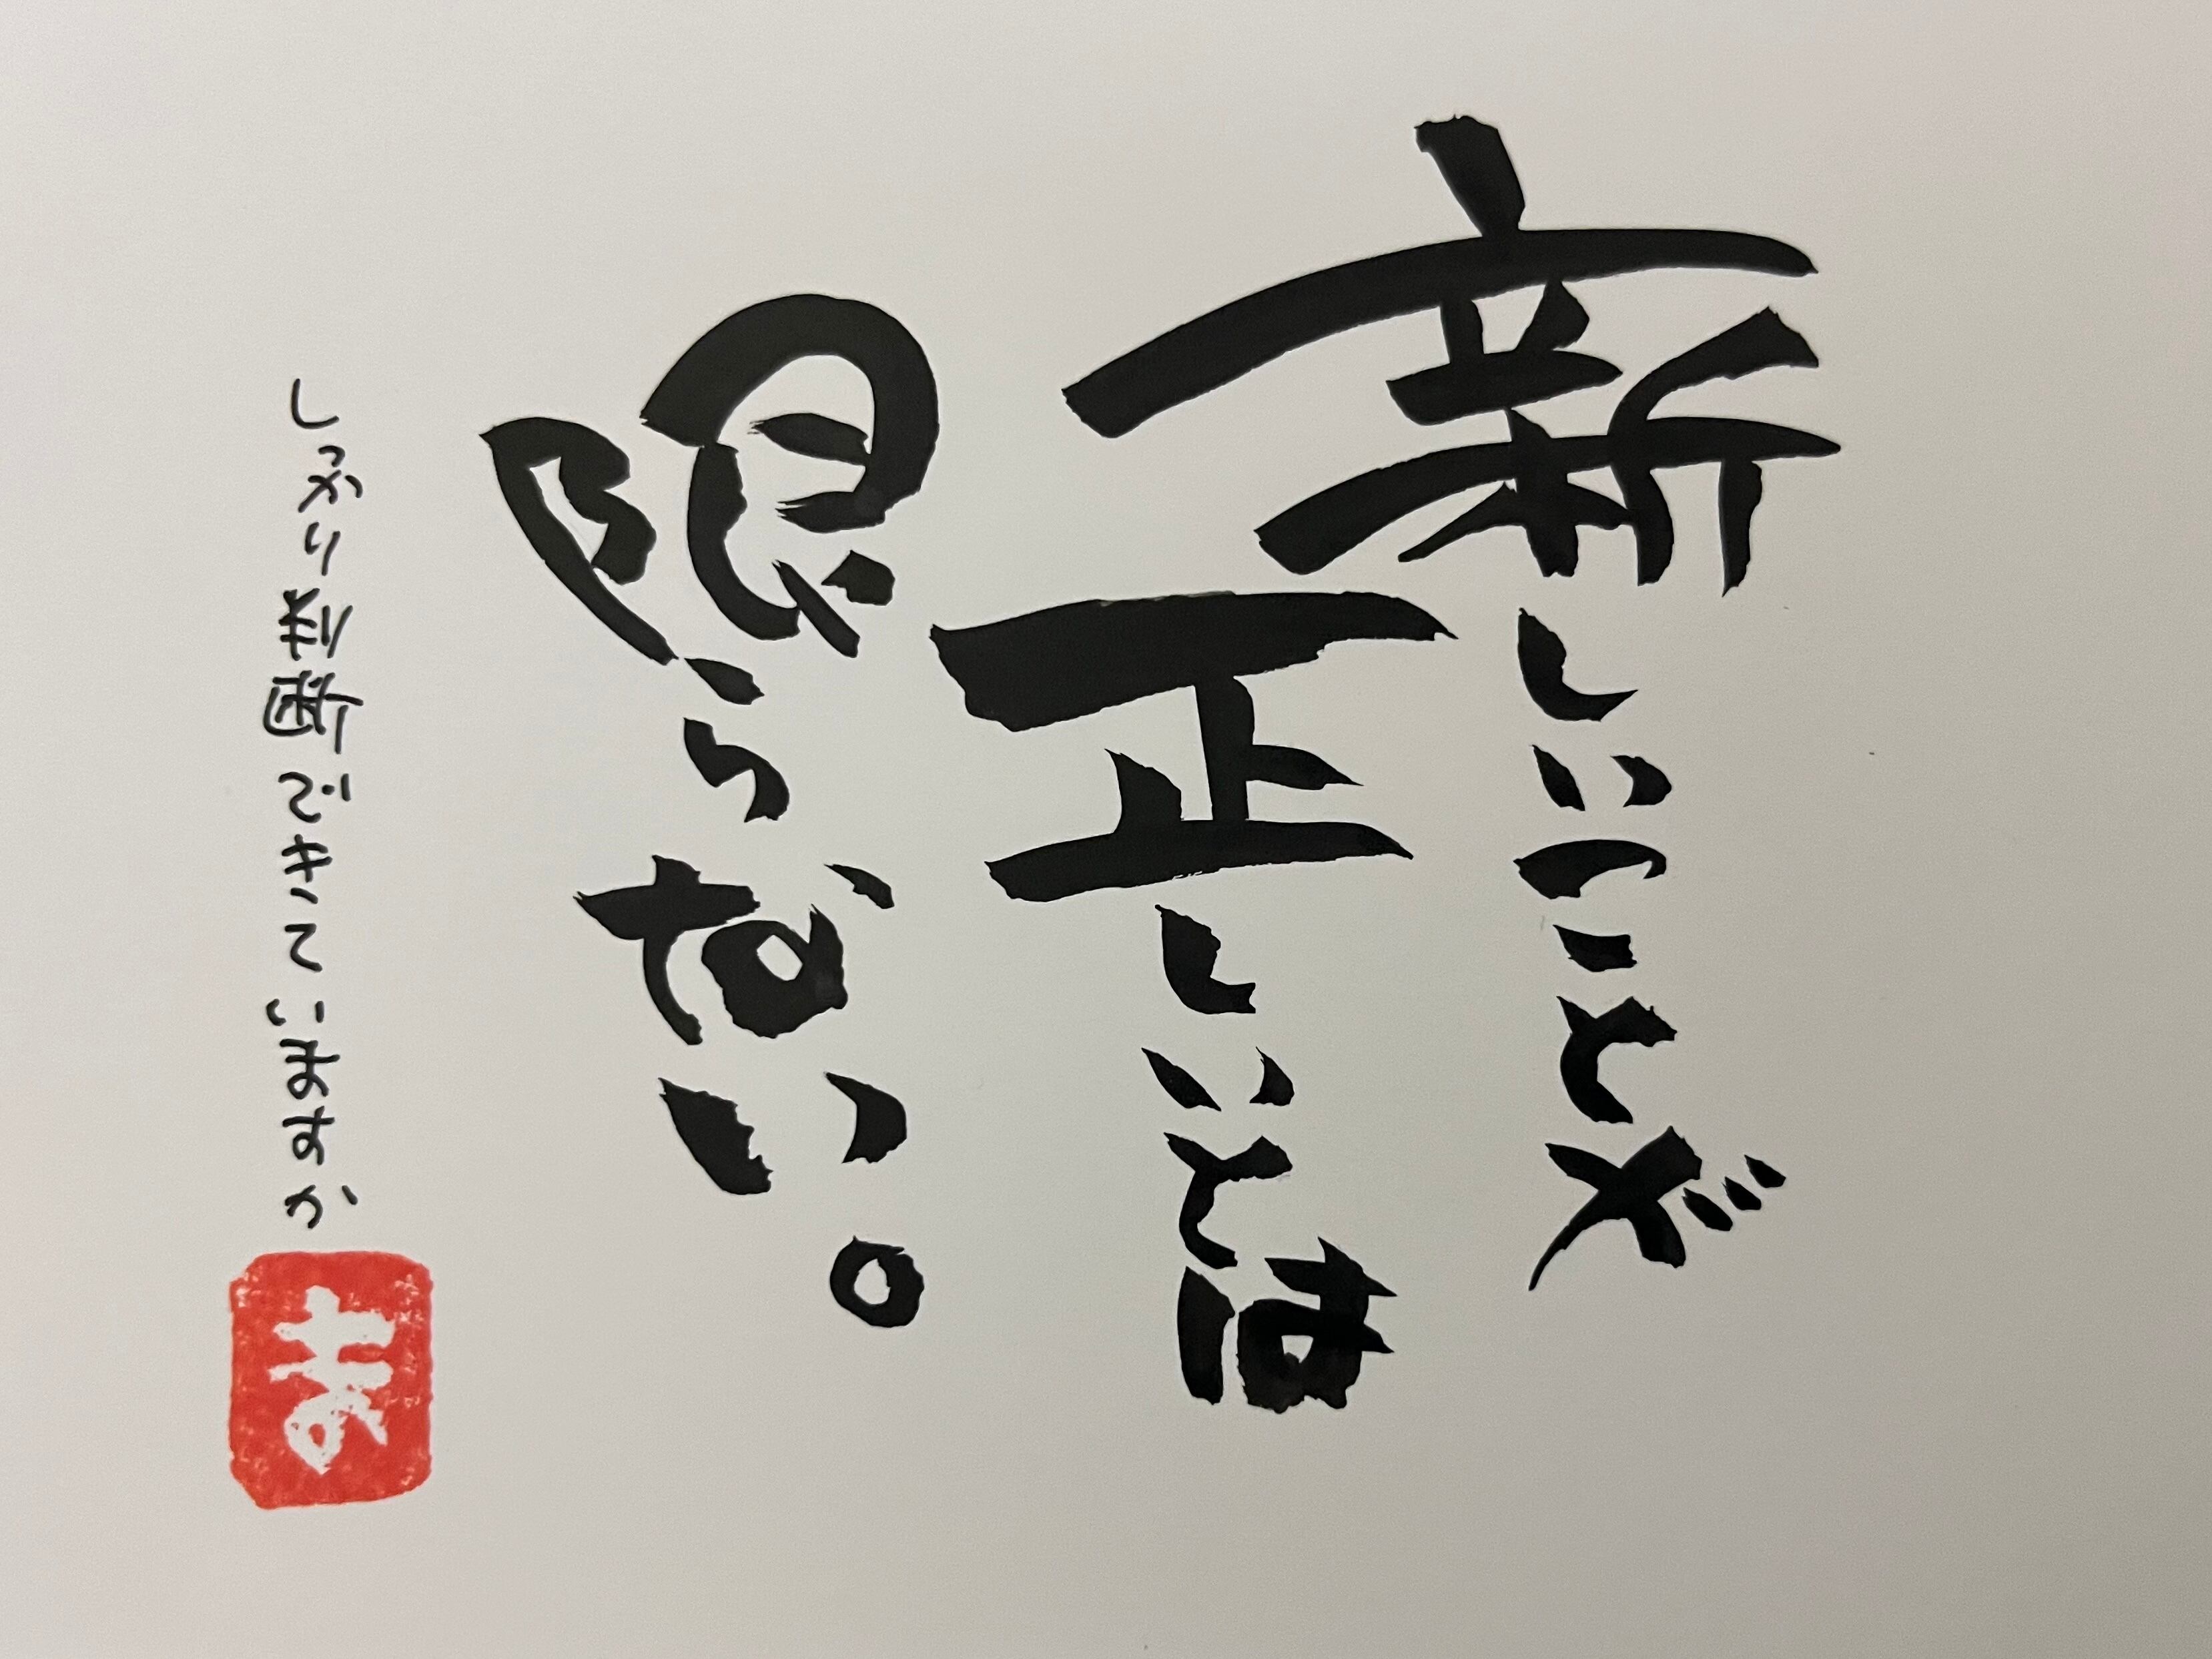 新しいことが
正しいとは
限らない。
しっかり判断できていますか